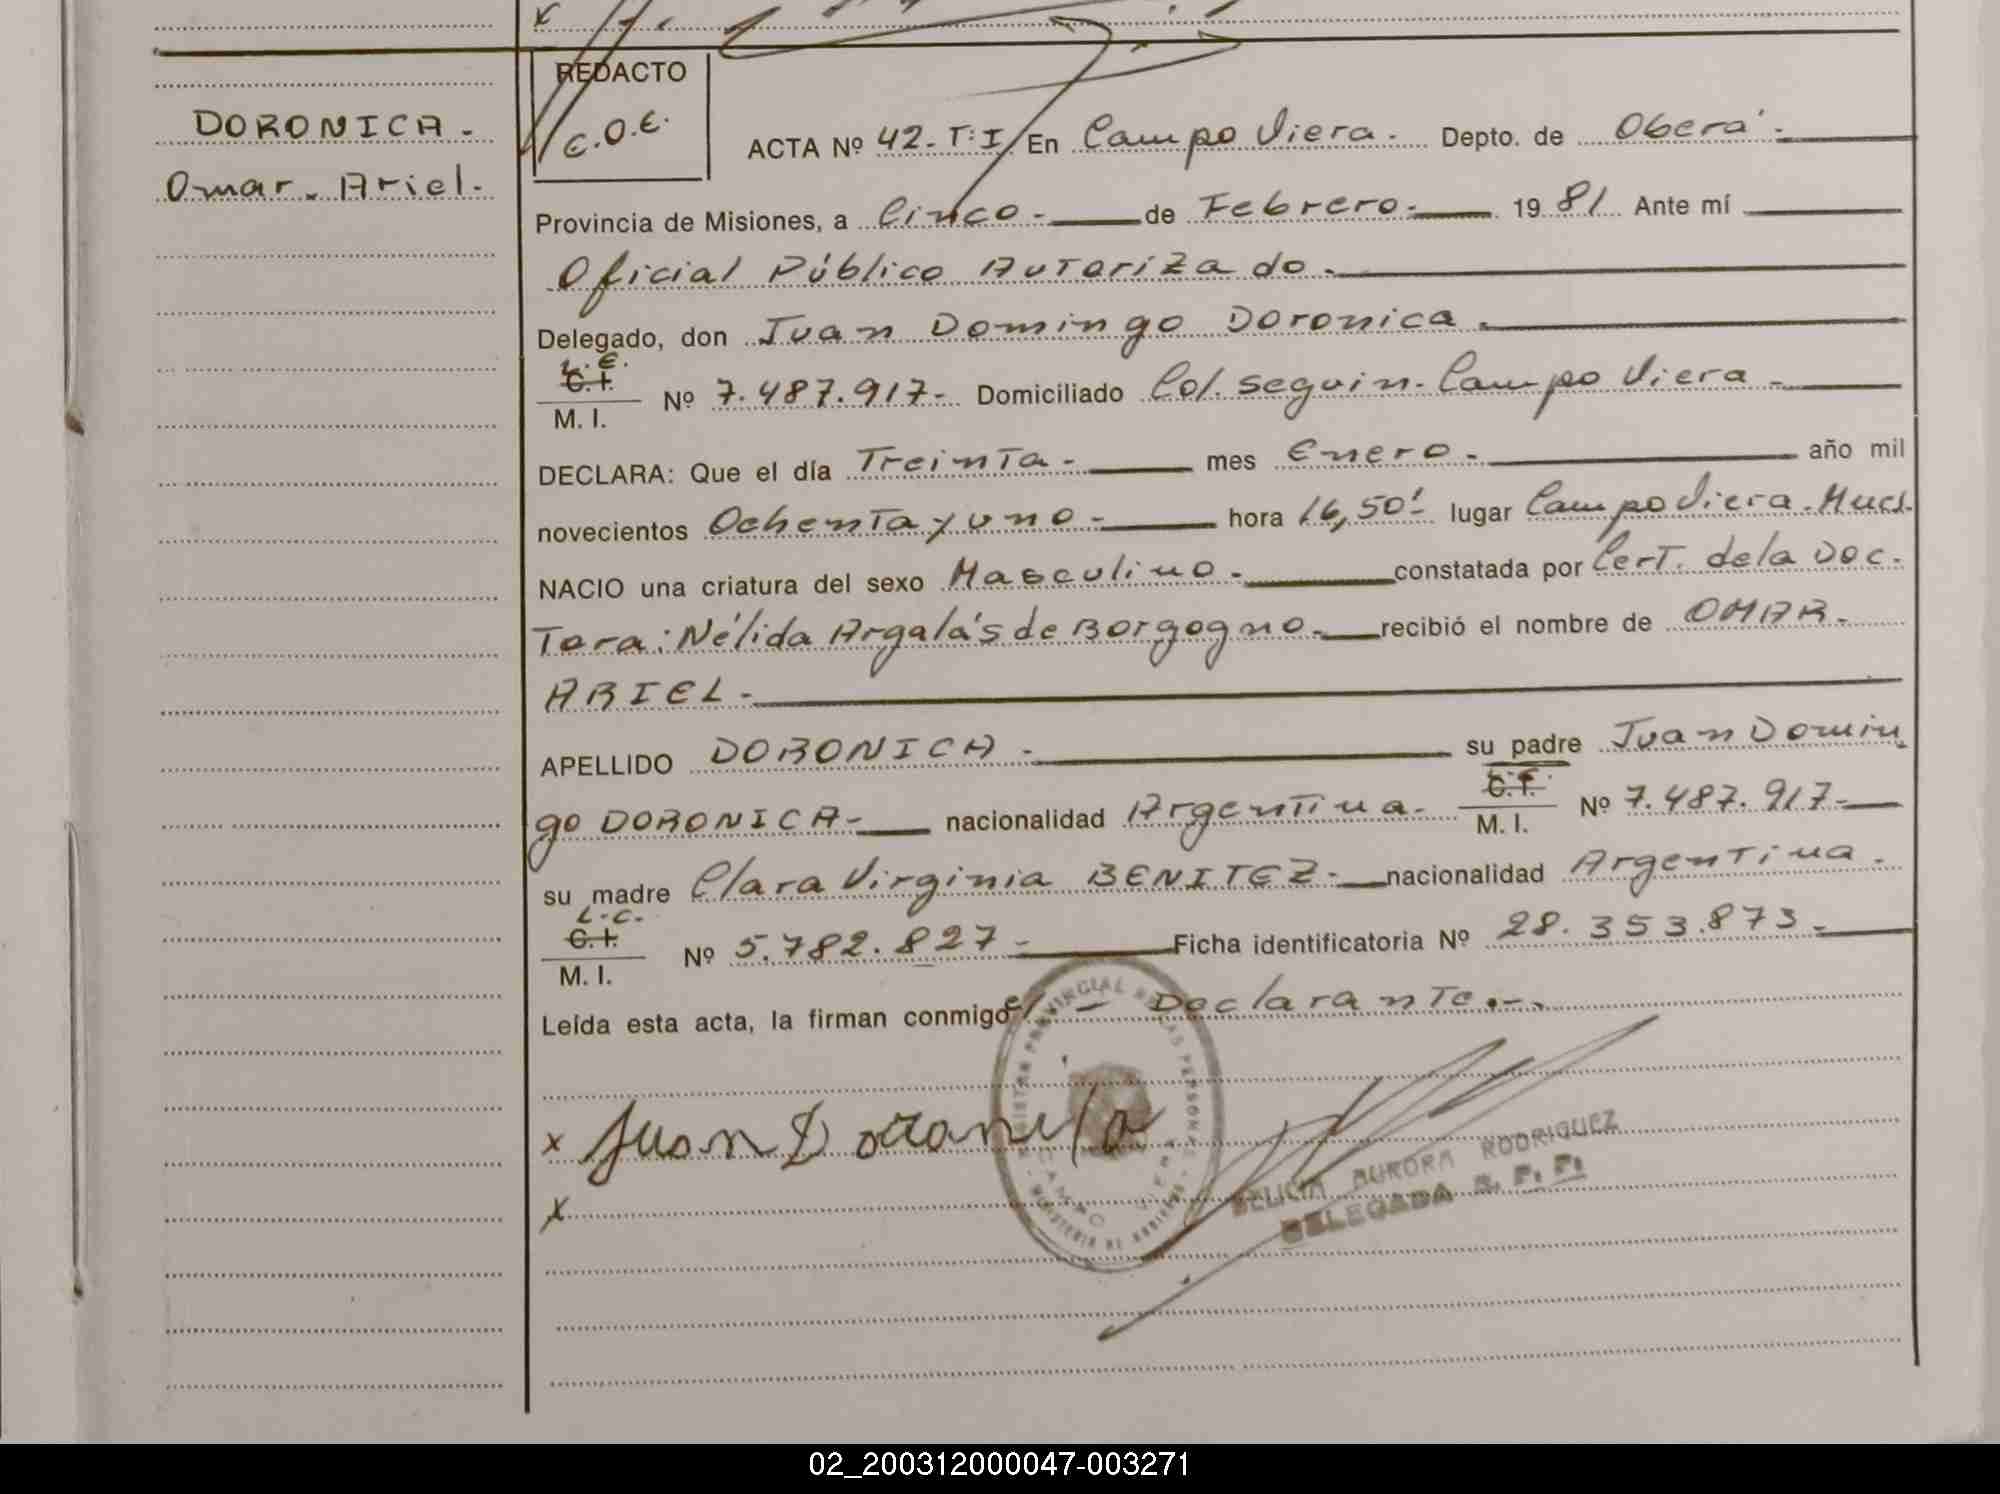 DORONICA.
Omar. Ariel.
REDACTO
C.O.E.
ACTA Nº 42-T:I En Campo Viera. Depto. de Oberá.
Provincia de Misiones, a Cinco. de Febrero. 19 81 Ante mí
Oficial Público Autorizado.
Delegado, don Juan Domingo Doronica.
L.E.
C.I.
M. I. Nº 7.487.917- Domiciliado Col. Seguin. Campo Viera.
DECLARA: Que el día Treinta. mes Enero. año mil
novecientos Ochenta y uno. hora 16,50' lugar Campo Viera. Mcs.
NACIO una criatura del sexo Masculino. constatada por Cert. de la Doc.
Tora: Nélida Argalás de Borgogno. recibió el nombre de OMAR.
ARIEL.
APELLIDO DORONICA. su padre Juan Domin
go DORONICA- nacionalidad Argentina. C.I. M. I. Nº 7.487.917-
su madre Clara Virginia BENITEZ- nacionalidad Argentina.
L.C.
C.I.
M. I. Nº 5.782.827- Ficha identificatoria Nº 28.353.873-
Leída esta acta, la firman conmigo el - Declarante.-.
x Juan Doronica
x
REGISTRO PROVINCIAL DE LAS PERSONAS
CAMPO VIERA
MINISTERIO DE GOBIERNO
FELICIA AURORA RODRIGUEZ
DELEGADA R. P. P.
02_200312000047-003271